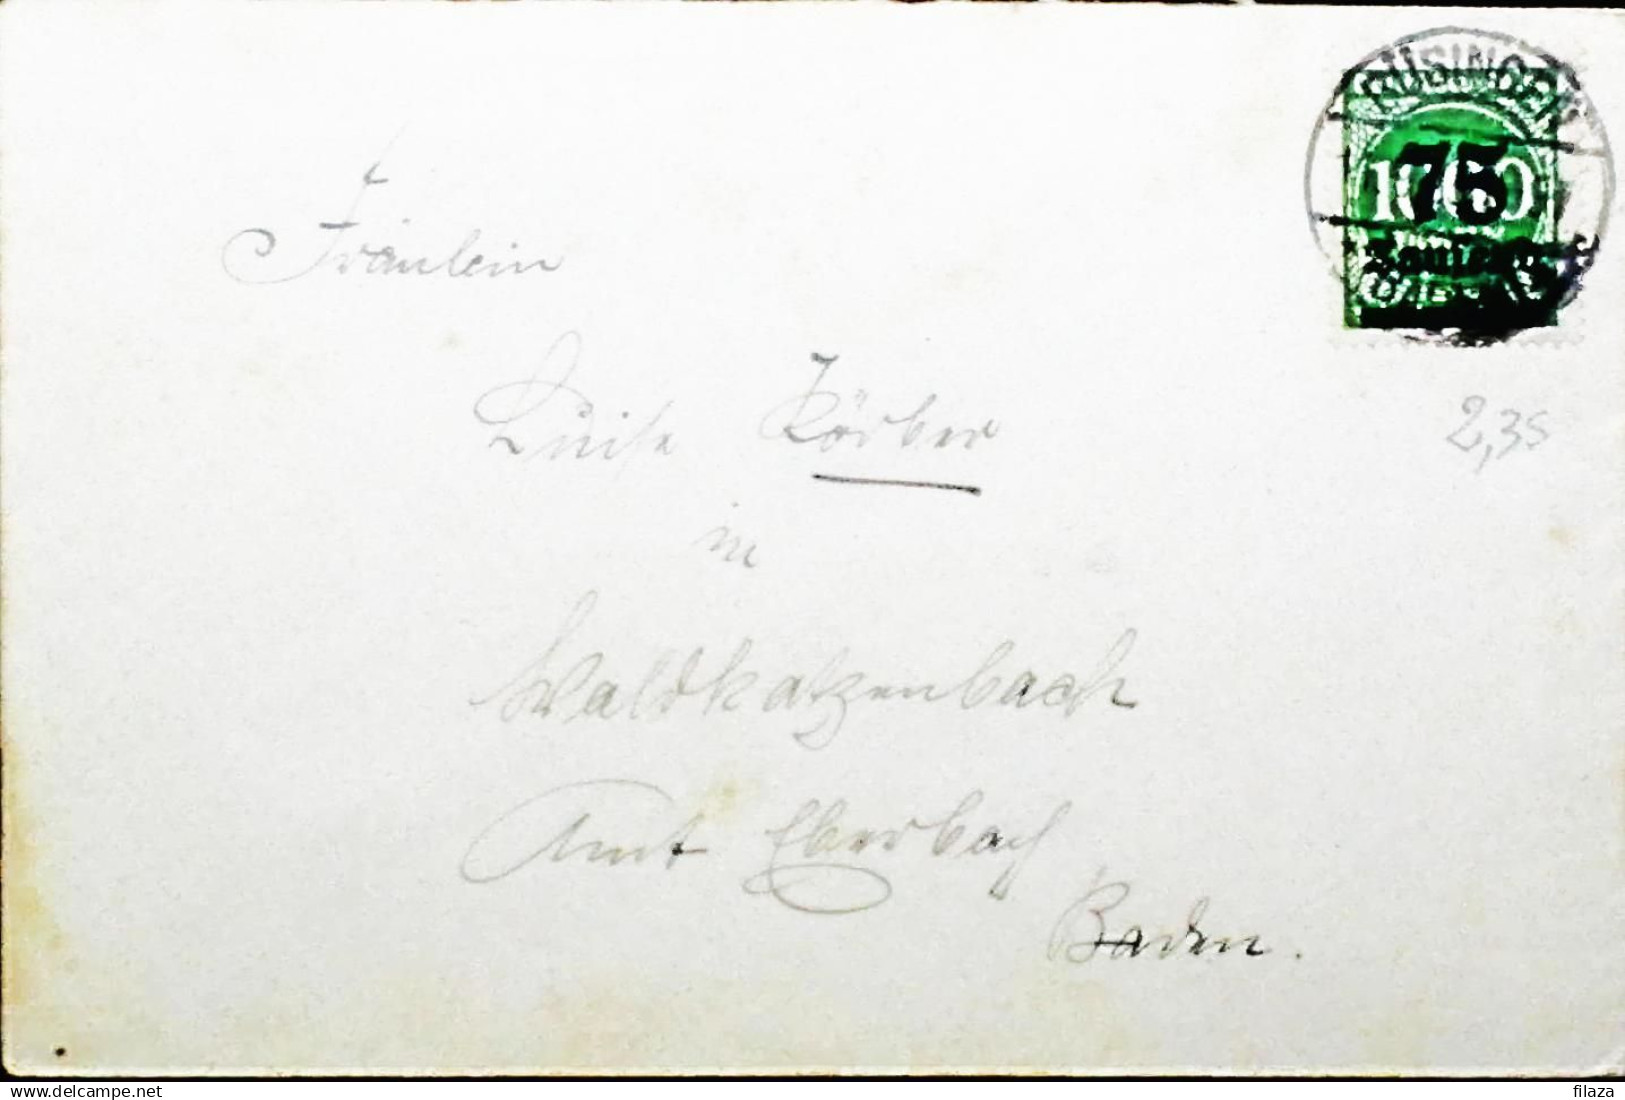 BÜSINGEN
75
1000
Tausend
Fräulein
Luise Körber
2,35
in
Waldkatzenbach
Amt Eberbach
Baden.
delcampe.net
filaza